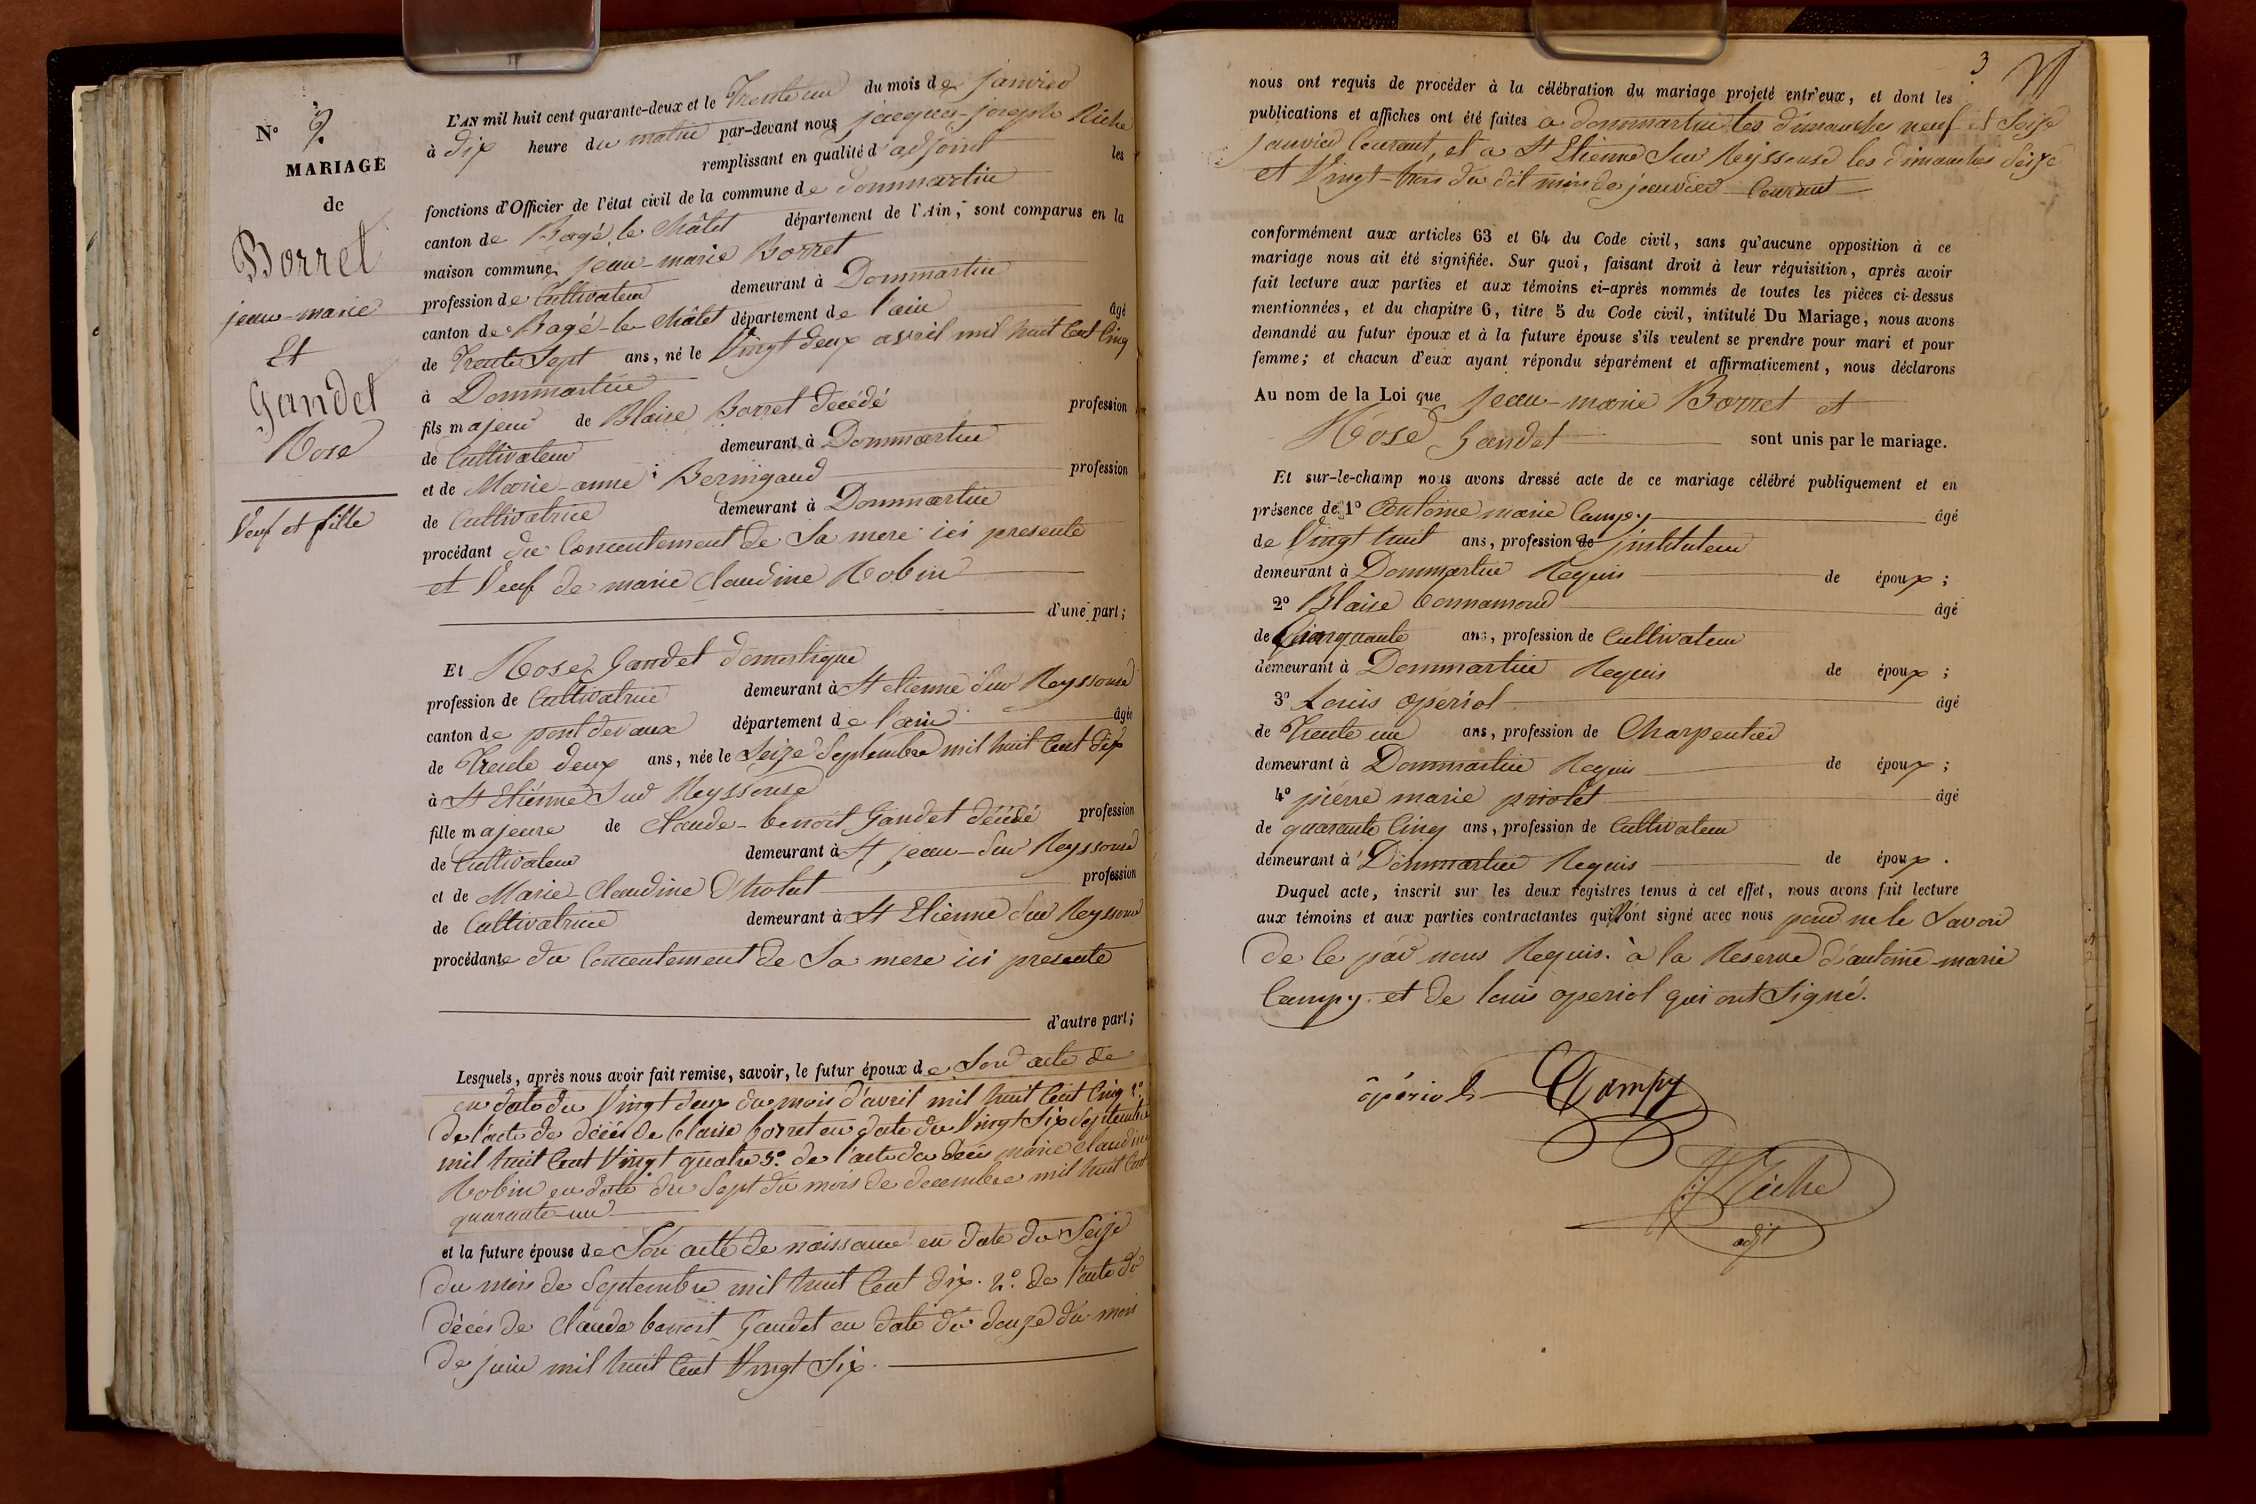 N°
MARIAGE
de
Borret
jean-marie
Et
Gandet
Rose
Veuf et fille
L'AN mil huit cent quarante-deux et le Trente un du mois de janvier
à dix heure du matin par-devant nous jacques-joseph Riche
remplissant en qualité d'adjoint les
fonctions d'Officier de l'état civil de la commune de dommartin
canton de Bagé le Châtel département de l'Ain, sont comparus en la
maison commune, jean-marie Borret
profession de Cultivateur demeurant à Dommartin
canton de Bagé-le-Châtel département de l'ain âgé
de Trente Sept ans, né le Vingt deux avril mil huit Cent Cinq
à Dommartin
fils majeur de Blaise Borret décédé profession
de Cultivateur demeurant à Dommartin
et de Marie-anne Bernigaud profession
de Cultivatrice demeurant à Dommartin
procédant du Concentement de Sa mere ici presente
et Veuf de marie Claudine Robin
d'une part;
Et Rose Gandet domestique
profession de Cultivatrice demeurant à St etienne Sur Reyssouse
canton de pont devaux département de l'ain âgée
de Trente deux ans, née le Seize Septembre mil huit Cent dix
à St Etienne Sur Reyssouse
fille majeure de Claude-benoit Gandet décédé profession
de Cultivateur demeurant à St jean-Sur Reyssouse
et de Marie-Claudine profession
de Cultivatrice demeurant à St Etienne Sur Reyssouse
procédante du Concentement de Sa mere ici presente
d'autre part;
Lesquels, après nous avoir fait remise, savoir, le futur époux de Son acte de
en date du Vingt deux du mois d'avril mil huit Cent Cinq 2°
de l'acte de décés de blaise borret en date du Vingt Six Septembre
mil huit Cent Vingt quatre 3°. de l'acte de décés marie Claudine
Robin en date du Sept du mois de decembre mil huit Cent
quarante-un
et la future épouse de Son acte de naissance en date du Seize
du mois de Septembre mil huit Cent dix. 2°. de l'acte de
décés de Claude benoit Gandet en date du douze du mois
de juin mil huit Cent Vingt Six.
3
nous ont requis de procéder à la célébration du mariage projeté entr'eux, et dont les
publications et affiches ont été faites a dommartin les dimanches neuf et Seize
janvier Courant, et a St Etienne Sur Reyssouse les dimanches Seize
et Vingt-trois du dit mois de janvier Courant
conformément aux articles 63 et 64 du Code civil, sans qu'aucune opposition à ce
mariage nous ait été signifiée. Sur quoi, faisant droit à leur réquisition, après avoir
fait lecture aux parties et aux témoins ci-après nommés de toutes les pièces ci-dessus
mentionnées, et du chapitre 6, titre 5 du Code civil, intitulé Du Mariage, nous avons
demandé au futur époux et à la future épouse s'ils veulent se prendre pour mari et pour
femme; et chacun d'eux ayant répondu séparément et affirmativement, nous déclarons
Au nom de la Loi que jean-marie Borret et
Rose Gandet sont unis par le mariage.
Et sur-le-champ nous avons dressé acte de ce mariage célébré publiquement et en
présence de 1° antoine marie Campy âgé
de Vingt huit ans, profession de Instituteur
demeurant à Dommartin Requis de époux;
2° Blaise Connamoud âgé
de Cinquante ans, profession de Cultivateur
demeurant à Dommartin Requis de époux;
3° Louis opériol âgé
de Trente un ans, profession de Charpentier
demeurant à Dommartin Requis de époux;
4° pierre marie priolet âgé
de quarante Cinq ans, profession de Cultivateur
demeurant à Dommartin Requis de époux.
Duquel acte, inscrit sur les deux registres tenus à cet effet, nous avons fait lecture
aux témoins et aux parties contractantes qui n'ont signé avec nous pour ne le Savoir
de ce par nous Requis. à la Reserve d'antoine-marie
Campy. et de louis operiol qui ont Signé.
ôpériol Campy
Riche
adjt